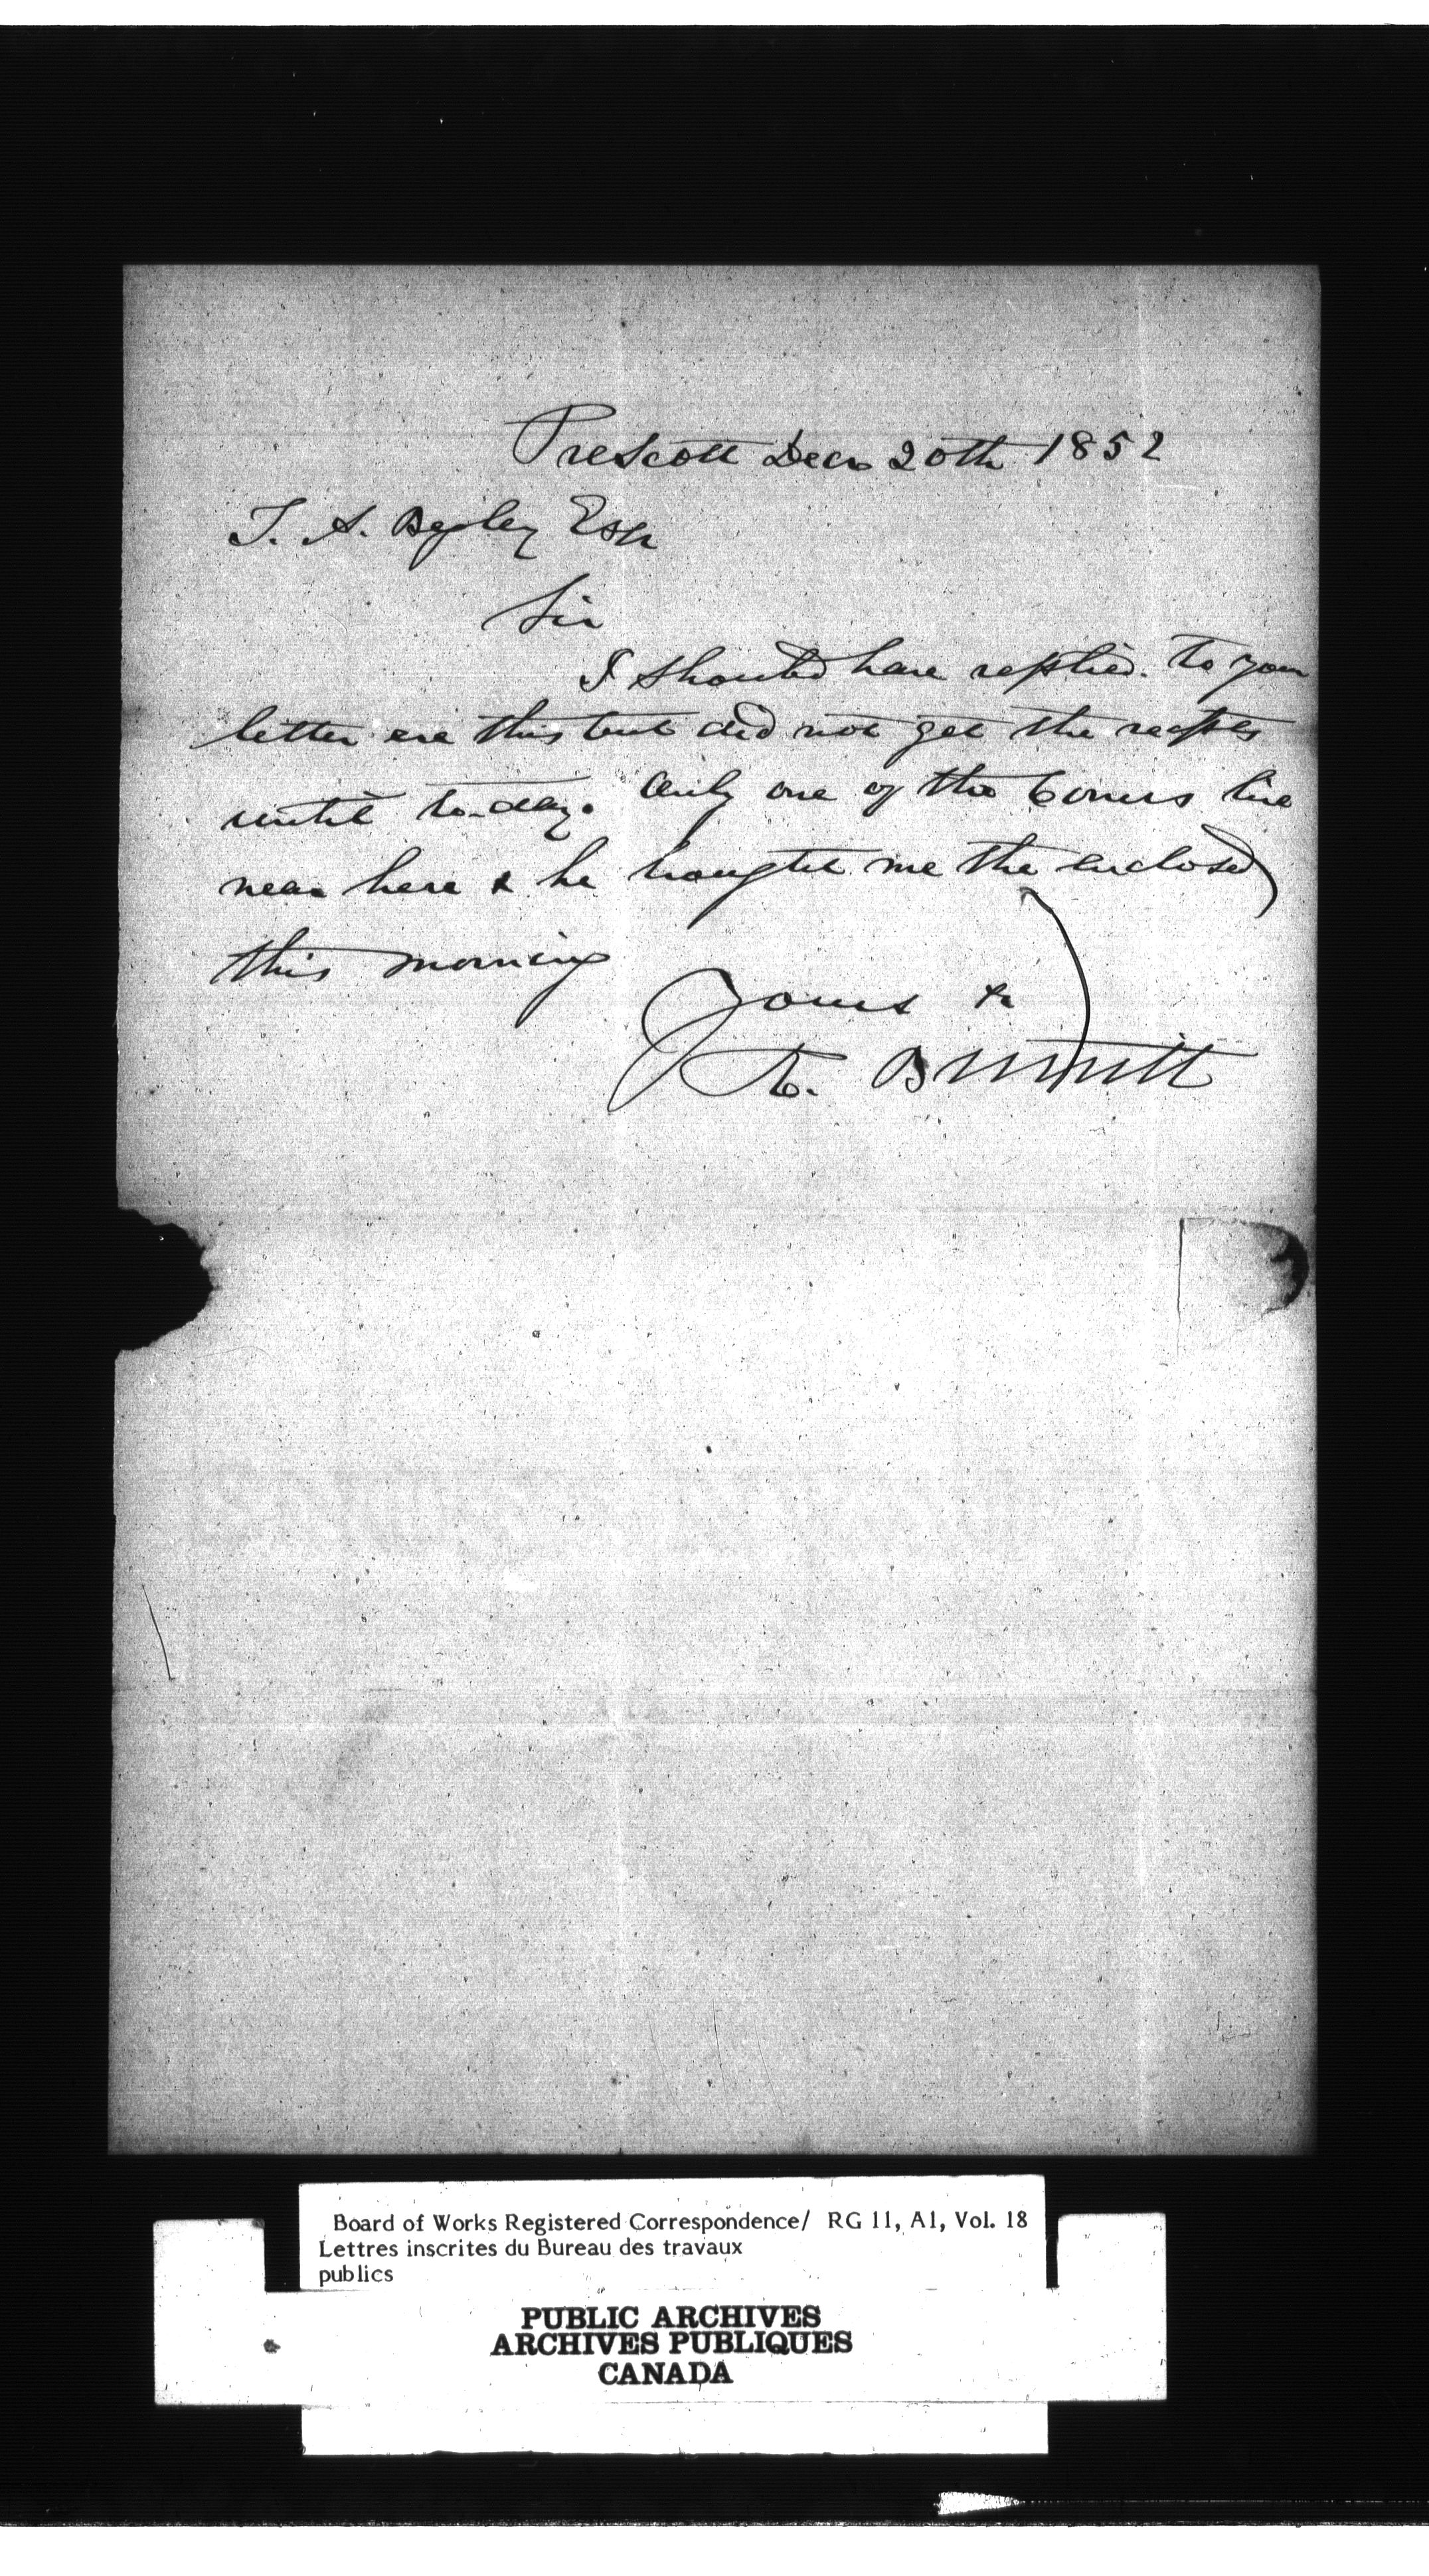 Prescott Decr 20th 1852
T. A. Begley Esqr
Sir
I should have replied to your
letter ere this but did not get the
until to-day. Only one of the live
near here & he brought me the enclosed
this morning
Yours &c
Board of Works Registered Correspondence/ RG 11, A1, Vol. 18
Lettres inscrites du Bureau des travaux
publics
PUBLIC ARCHIVES
ARCHIVES PUBLIQUES
CANADA